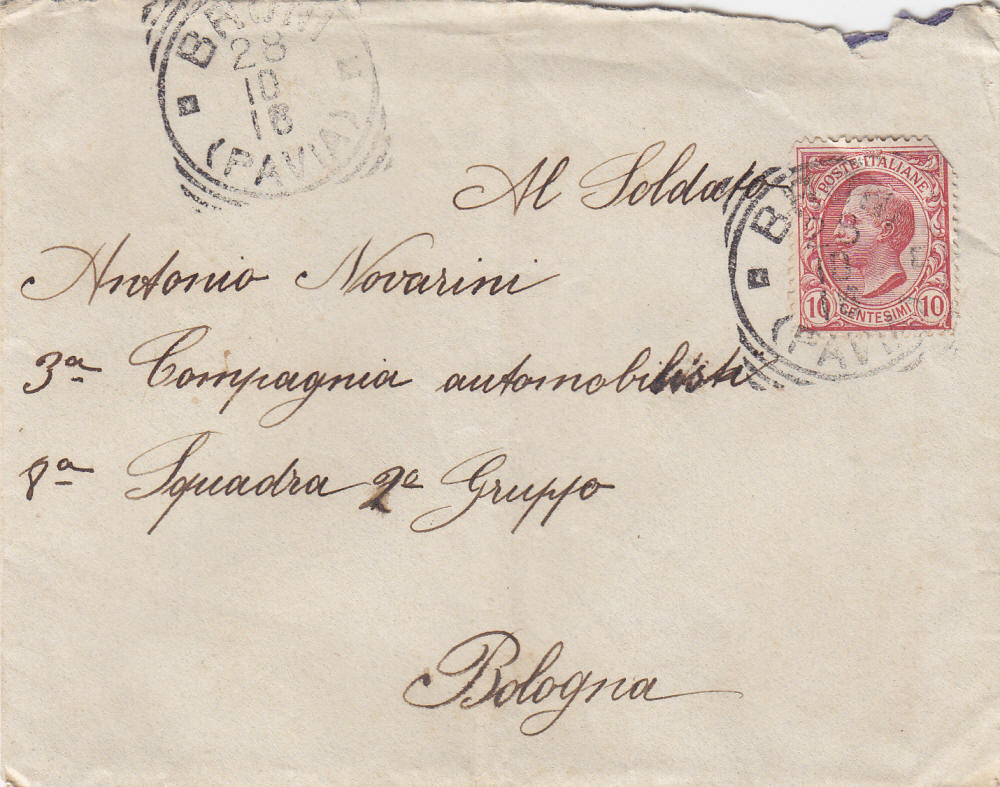 BRONI
28
10
18
(PAVIA)
POSTE ITALIANE
10 CENTESIMI 10
(PAVI
Al Soldato
Antonio Novarini
3ª Compagnia automobilisti
8ª Squadra 2º Gruppo
Bologna